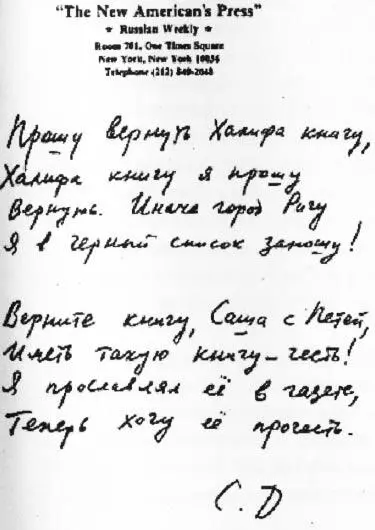 "The New American's Press"
★ Russian Weekly ★
Room 701, One Times Square
New York, New York 10036
Telephone (212) 840-2048
Прошу вернуть Халифа книгу,
Халифа книгу я прошу
Вернуть. Иначе город Ригу
Я в черный список заношу!
Верните книгу, Саша с Петей,
Иметь такую книгу – честь!
Я прославлял её в газете,
Теперь хочу её прочесть.
С. Д